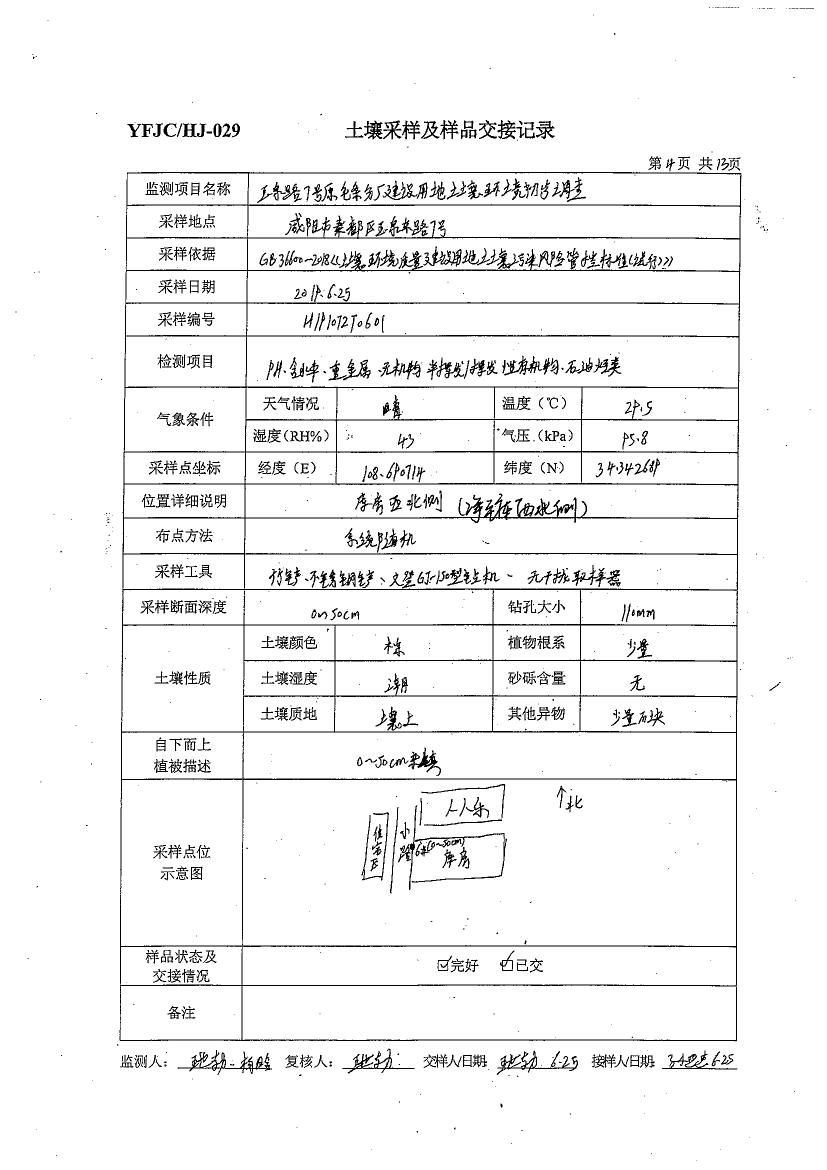 YFJC/HJ-029 土壤采样及样品交接记录
第4页 共13页
监测项目名称 路7号原毛条分厂建设用地土壤环境初步调查
采样地点 咸阳市秦都区玉泉路7号
采样依据 GB36600-2018《土壤环境质量建设用地土壤污染风险管控标准(试行)》
采样日期 2019.6.25
采样编号 H191072T0601
检测项目 pH、含水率、重金属、无机物、半挥发/挥发性有机物、石油烃类
气象条件 天气情况 晴 温度(℃) 29.5
湿度(RH%) 43 气压(kPa) 95.8
采样点坐标 经度(E) 108.690714 纬度(N) 34.342689
位置详细说明 库房西北侧
布点方法 系统随机
采样工具 竹铲、不锈钢铲、GJ-150型钻机、无干扰取样器
采样断面深度 0~50cm 钻孔大小 110mm
土壤性质 土壤颜色 棕 植物根系 少量
土壤湿度 潮 砂砾含量 无
土壤质地 壤土 其他异物 少量石块
自下而上
植被描述 0~50cm
采样点位
示意图
↑北
人人乐
住宅区
小路
6#(0~50cm)
库房
样品状态及
交接情况 ☑完好 ☑已交
备注
监测人: 复核人: 交样人/日期: 6.25 接样人/日期: 6.25